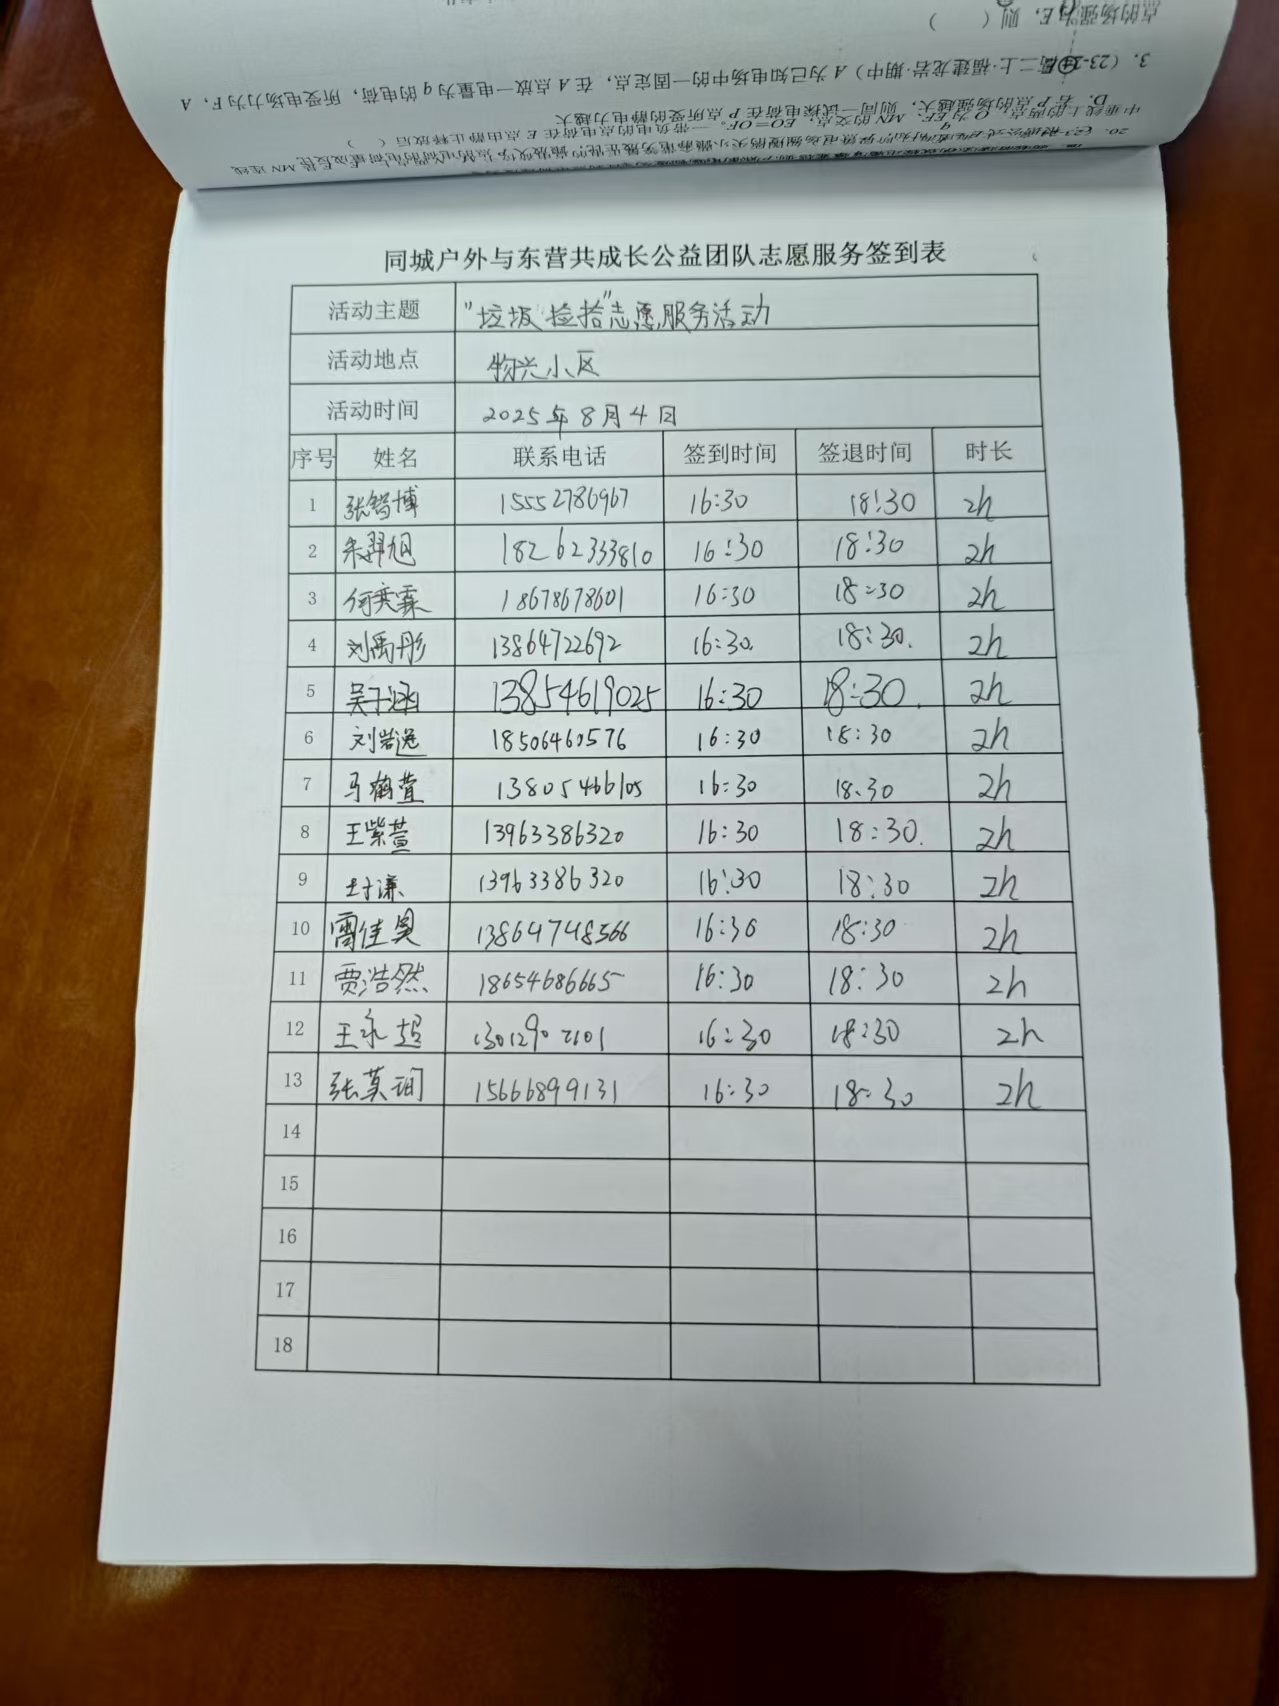 点的场强为E，则（ ）
3．（23-24高二上·福建龙岩·期中）A为已知电场中的一固定点，在A点放一电量为q的电荷，所受电场力为F，A
D．若P点的场强越大，则同一试探电荷在P点所受的静电力越大
同城户外与东营共成长公益团队志愿服务签到表
活动主题 "垃圾捡拾"志愿服务活动
活动地点 物兴小区
活动时间 2025年8月4日
序号 姓名 联系电话 签到时间 签退时间 时长
1 张智博 15552786967 16:30 18:30 2h
2 朱羿旭 18262333810 16:30 18:30 2h
3 何奕霖 18678678601 16:30 18:30 2h
4 刘禹彤 13864722692 16:30. 18:30. 2h
5 吴子涵 13854619025 16:30 18:30. 2h
6 刘岩逸 18506460576 16:30 18:30 2h
7 马鹤萱 13805466105 16:30 18:30 2h
8 王紫萱 13963386320 16:30 18:30. 2h
9 封谦 13963386320 16:30 18:30 2h
10 雷佳昊 13864748566 16:30 18:30 2h
11 贾浩然 18654686665 16:30 18:30 2h
12 王永超 13012902101 16:30 18:30 2h
13 张莫词 15666899131 16:30 18:30 2h
14
15
16
17
18